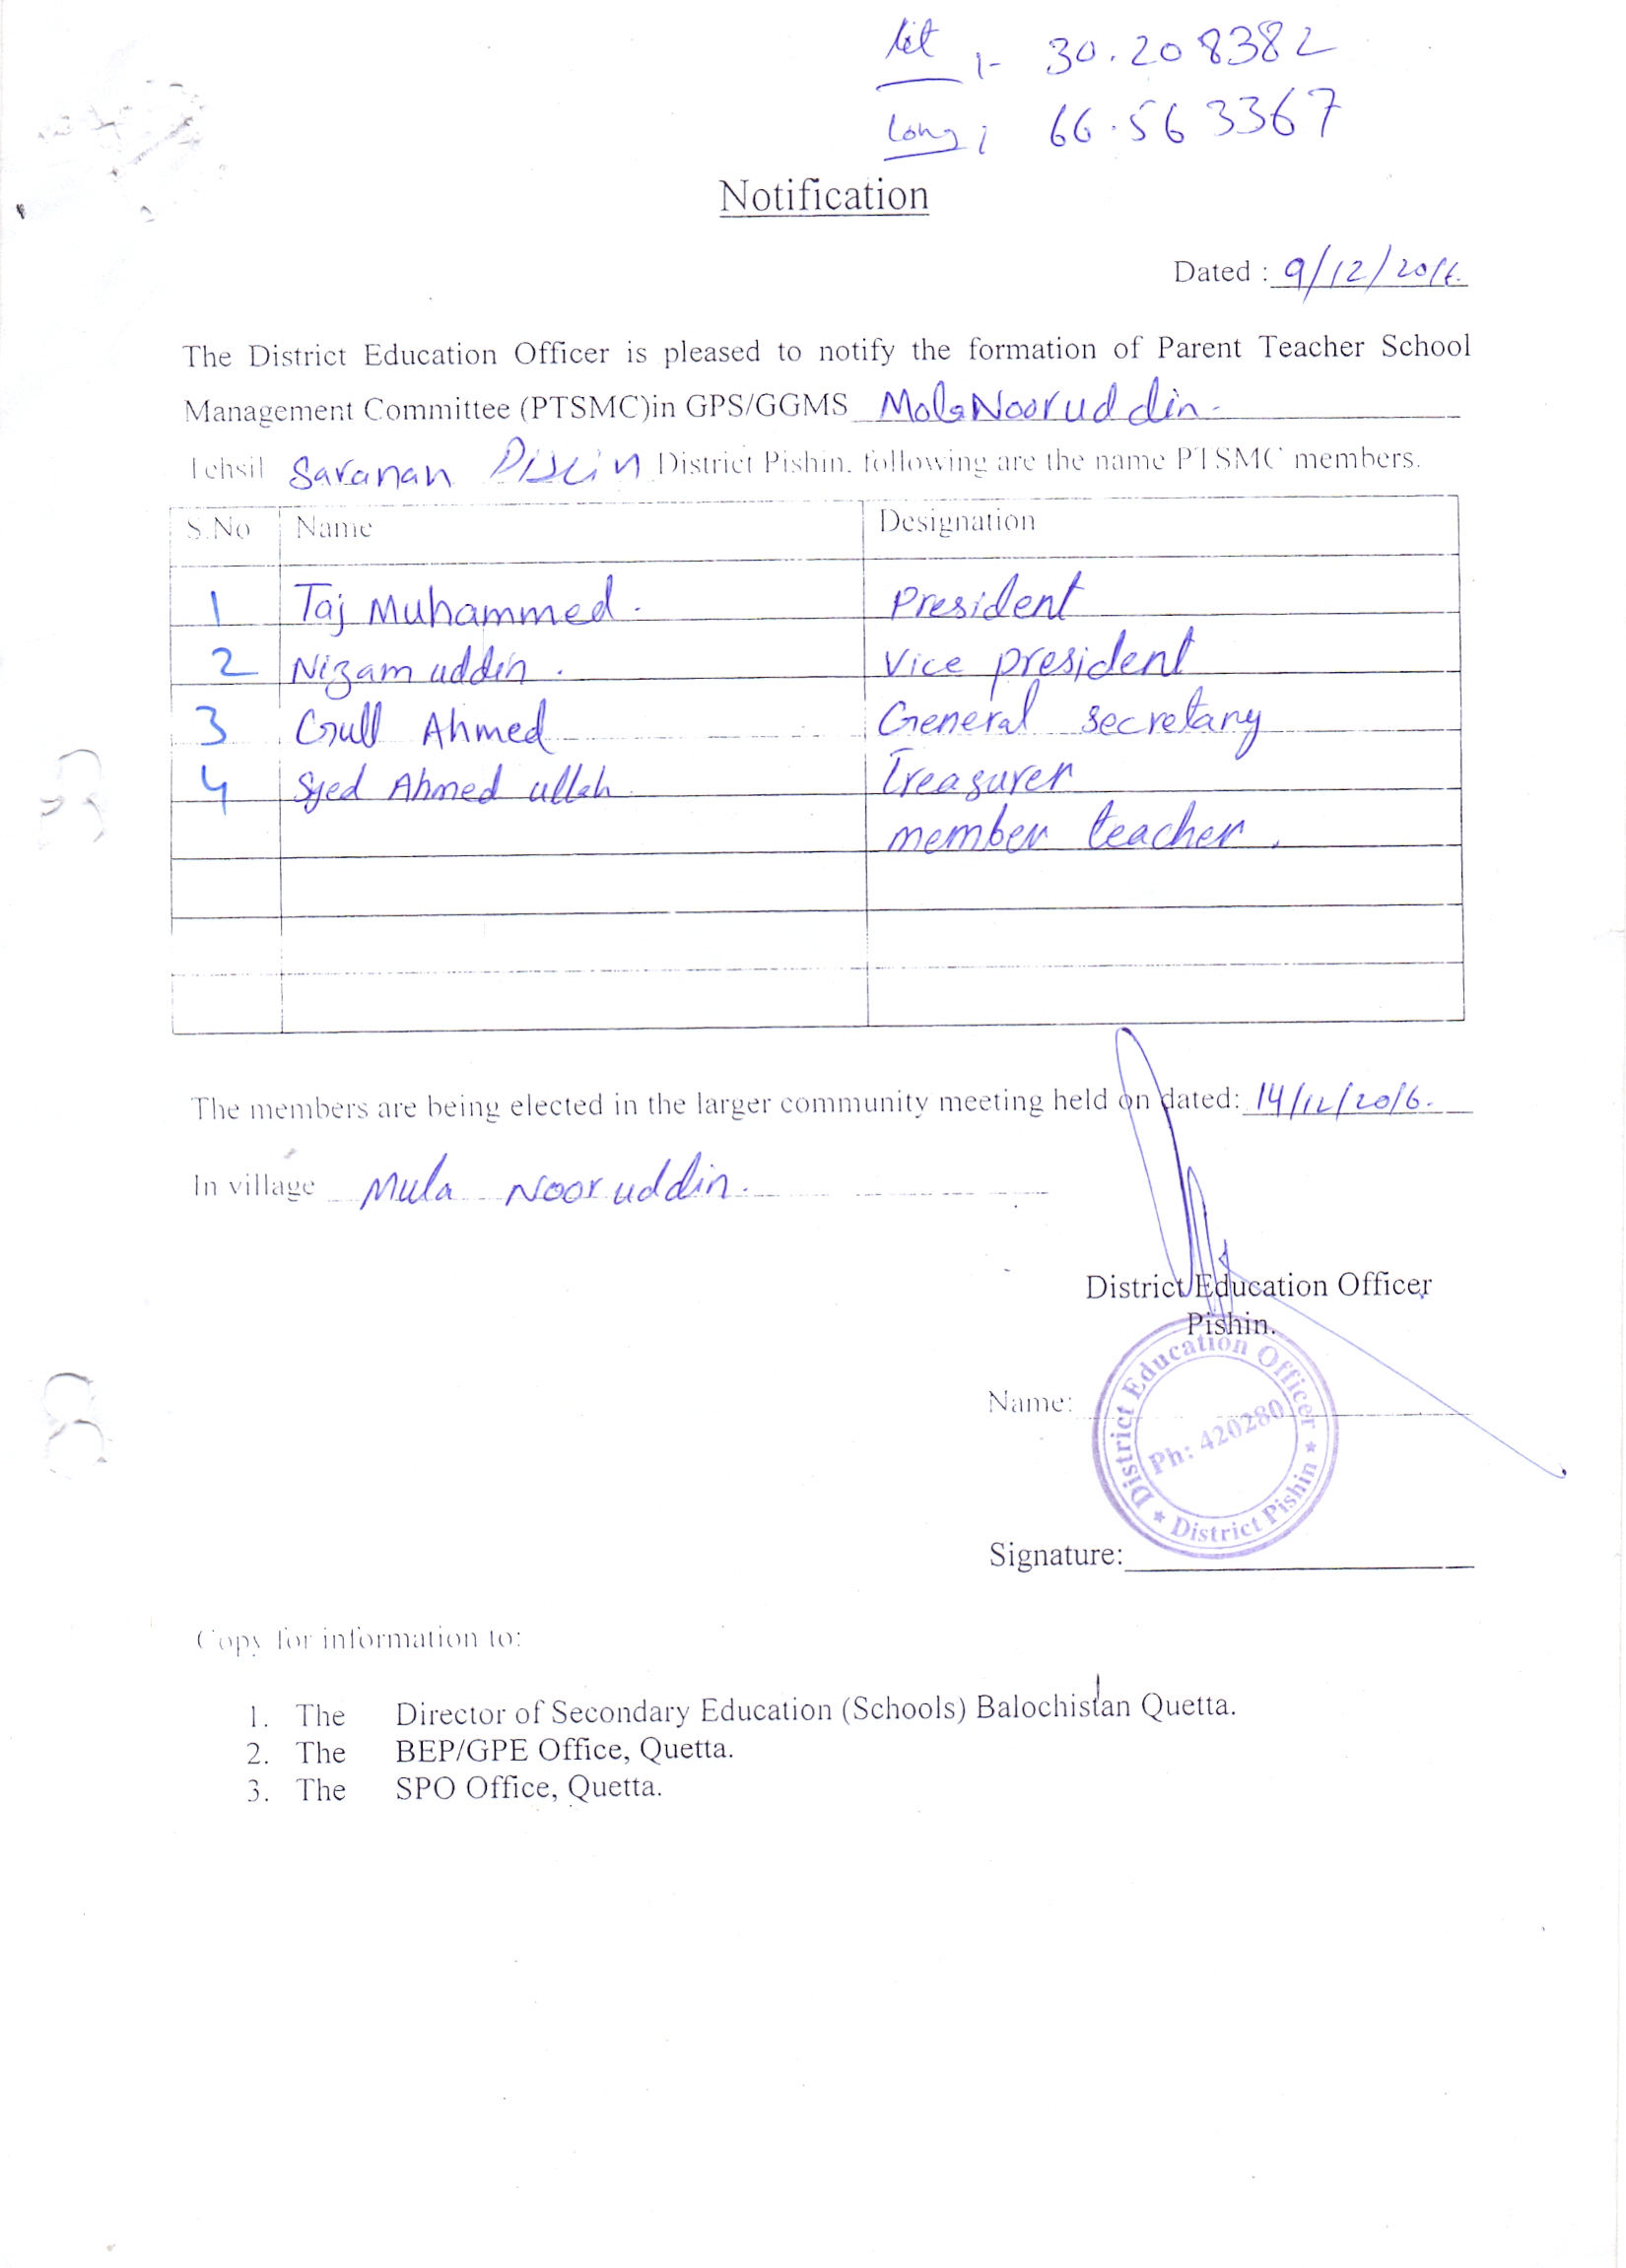 Lat :- 30.208382
Long ; 66.563367
Notification
Dated : 9/12/2016.
The District Education Officer is pleased to notify the formation of Parent Teacher School
Management Committee (PTSMC)in GPS/GGMS Mola Nooruddin.
Tehsil Saranan Pishin District Pishin. following are the name PTSMC members.
S.No Name Designation
1 Taj Muhammed. President
2 Nizam uddin. Vice president
3 Gull Ahmed General secretary
4 Syed Ahmed ullah Treasurer
member teacher.
The members are being elected in the larger community meeting held on dated: 14/12/2016.
In village Mula Nooruddin.
District Education Officer
Pishin.
Name:
District Education Officer
Ph: 420280
★ District Pishin ★
Signature:
Copy for information to:
1. The Director of Secondary Education (Schools) Balochistan Quetta.
2. The BEP/GPE Office, Quetta.
3. The SPO Office, Quetta.